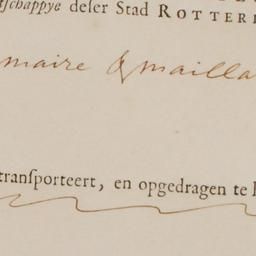 tſchappye deſer Stad ROTTER
maire & mailla
tranſporteert, en opgedragen te